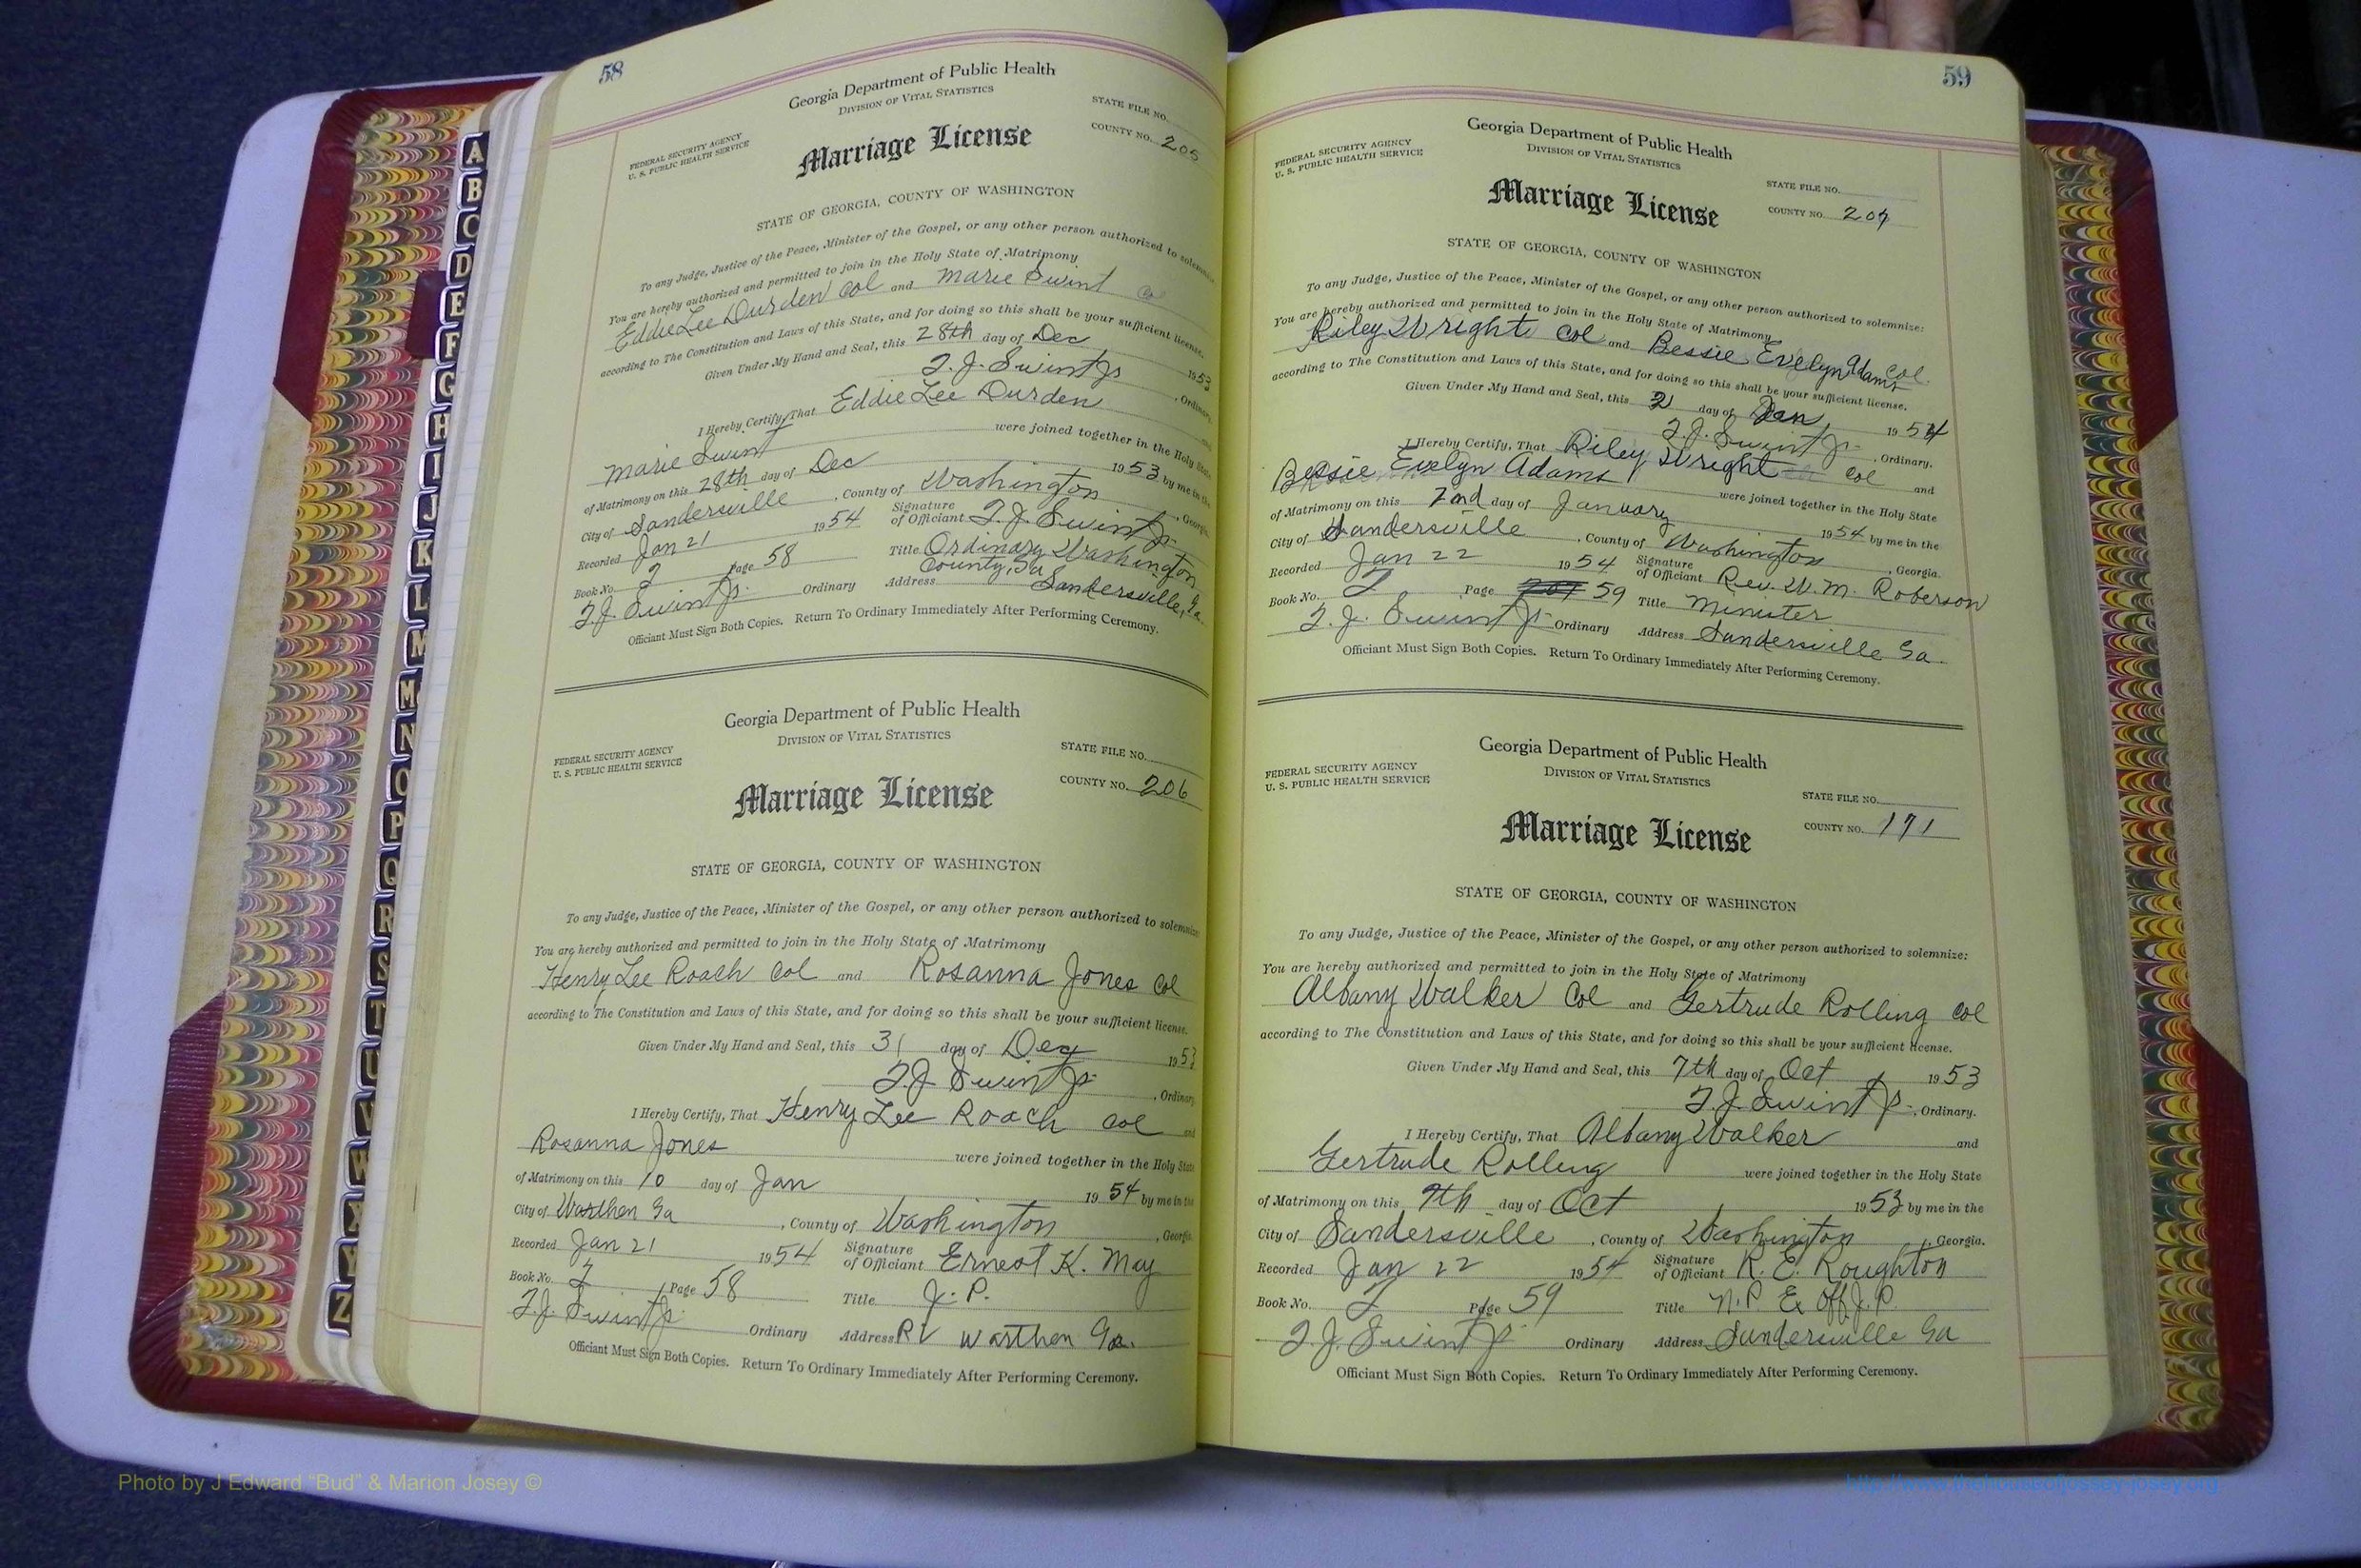 58
Georgia Department of Public Health
DIVISION OF VITAL STATISTICS
FEDERAL SECURITY AGENCY
U. S. PUBLIC HEALTH SERVICE
STATE FILE NO.
COUNTY NO. 205
Marriage License
STATE OF GEORGIA, COUNTY OF WASHINGTON
To any Judge, Justice of the Peace, Minister of the Gospel, or any other person authorized to solemnize
You are hereby authorized and permitted to join in the Holy State of Matrimony
Eddie Lee Durden Col and Marie Swint
according to The Constitution and Laws of this State, and for doing so this shall be your sufficient license.
Given Under My Hand and Seal, this 28th day of Dec 1953
T. J. Swint Jr , Ordinary
I Hereby Certify, That Eddie Lee Durden
Marie Swint were joined together in the Holy State
of Matrimony on this 28th day of Dec 1953 by me in the
City of Sandersville , County of Washington , Georgia.
Recorded Jan 21 1954 Signature of Officiant T. J. Swint Jr.
Book No. Z Page 58 Title Ordinary Washington County, Ga
T. J. Swint Jr. Ordinary Address Sandersville, Ga.
Officiant Must Sign Both Copies. Return To Ordinary Immediately After Performing Ceremony.
Georgia Department of Public Health
DIVISION OF VITAL STATISTICS
FEDERAL SECURITY AGENCY
U. S. PUBLIC HEALTH SERVICE
STATE FILE NO.
COUNTY NO. 206
Marriage License
STATE OF GEORGIA, COUNTY OF WASHINGTON
To any Judge, Justice of the Peace, Minister of the Gospel, or any other person authorized to solemnize
You are hereby authorized and permitted to join in the Holy State of Matrimony
Henry Lee Roach Col and Rosanna Jones Col
according to The Constitution and Laws of this State, and for doing so this shall be your sufficient license.
Given Under My Hand and Seal, this 31 day of Dec 1953
T. J. Swint Jr. , Ordinary
I Hereby Certify, That Henry Lee Roach Col and
Rosanna Jones were joined together in the Holy State
of Matrimony on this 10 day of Jan 1954 by me in the
City of Warthen Ga , County of Washington , Georgia
Recorded Jan 21 1954 Signature of Officiant Ernest K. May
Book No. Z Page 58 Title J. P.
T. J. Swint Jr. Ordinary Address R1 Warthen Ga.
Officiant Must Sign Both Copies. Return To Ordinary Immediately After Performing Ceremony.
59
Georgia Department of Public Health
DIVISION OF VITAL STATISTICS
FEDERAL SECURITY AGENCY
U. S. PUBLIC HEALTH SERVICE
STATE FILE NO.
COUNTY NO. 207
Marriage License
STATE OF GEORGIA, COUNTY OF WASHINGTON
To any Judge, Justice of the Peace, Minister of the Gospel, or any other person authorized to solemnize:
You are hereby authorized and permitted to join in the Holy State of Matrimony
Riley Wright Col and Bessie Evelyn Adams Col.
according to The Constitution and Laws of this State, and for doing so this shall be your sufficient license.
Given Under My Hand and Seal, this 2 day of Jan 1954
T. J. Swint Jr. , Ordinary.
I Hereby Certify, That Riley Wright Col and
Bessie Evelyn Adams were joined together in the Holy State
of Matrimony on this 2nd day of January 1954 by me in the
City of Sandersville , County of Washington , Georgia.
Recorded Jan 22 1954 Signature of Officiant Rev. W. M. Roberson
Book No. Z Page 59 Title Minister
T. J. Swint Jr. Ordinary Address Sandersville Ga.
Officiant Must Sign Both Copies. Return To Ordinary Immediately After Performing Ceremony.
Georgia Department of Public Health
DIVISION OF VITAL STATISTICS
FEDERAL SECURITY AGENCY
U. S. PUBLIC HEALTH SERVICE
STATE FILE NO.
COUNTY NO. 171
Marriage License
STATE OF GEORGIA, COUNTY OF WASHINGTON
To any Judge, Justice of the Peace, Minister of the Gospel, or any other person authorized to solemnize:
You are hereby authorized and permitted to join in the Holy State of Matrimony
Albany Walker Col and Gertrude Rolling Col
according to The Constitution and Laws of this State, and for doing so this shall be your sufficient license.
Given Under My Hand and Seal, this 7th day of Oct 1953
T. J. Swint Jr. , Ordinary.
I Hereby Certify, That Albany Walker and
Gertrude Rolling were joined together in the Holy State
of Matrimony on this 7th day of Oct 1953 by me in the
City of Sandersville , County of Washington , Georgia.
Recorded Jan 22 1954 Signature of Officiant R. E. Roughton
Book No. Z Page 59 Title N. P. Ex Off. J. P.
T. J. Swint Jr. Ordinary Address Sandersville Ga
Officiant Must Sign Both Copies. Return To Ordinary Immediately After Performing Ceremony.
A
B
C
D
E
F
G
H
I
J
K
L
M
Mc
N
O
P
Q
R
S
T
U
V
W
X
Y
Z
Photo by J Edward “Bud” & Marion Josey ©
http://www.thehouseofjossey-josey.org